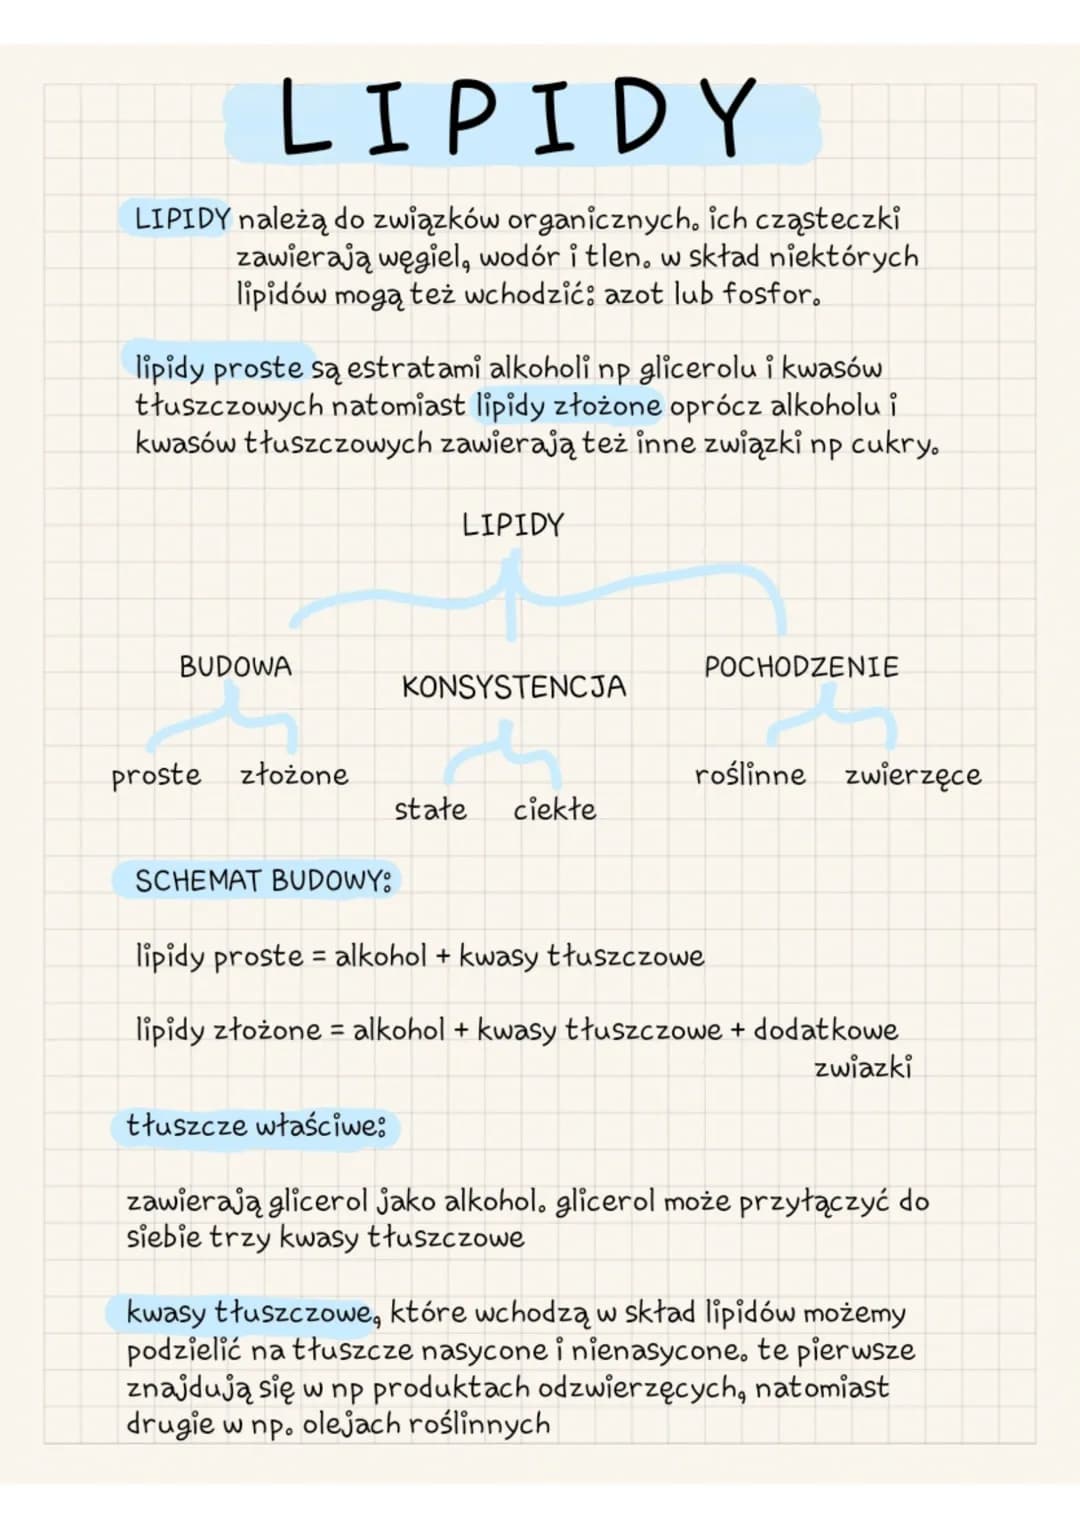 LIPIDY
LIPIDY należą do związków organicznych. ich cząsteczki
zawierają węgiel, wodór i tlen. w skład niektórych
lipidów mogą też wchodzić: azot lub fosfor.
lipidy proste są estratami alkoholi np glicerolu i kwasów
tłuszczowych natomiast lipidy złożone oprócz alkoholu i
kwasów tłuszczowych zawierają też inne związki np cukry.
LIPIDY
BUDOWA
KONSYSTENCJA
POCHODZENIE
proste złożone
stałe ciekłe
roślinne zwierzęce
SCHEMAT BUDOWY:
lipidy proste = alkohol + kwasy tłuszczowe
lipidy złożone = alkohol + kwasy tłuszczowe + dodatkowe
zwiazki
tłuszcze właściwe:
zawierają glicerol jako alkohol. glicerol może przyłączyć do
siebie trzy kwasy tłuszczowe
kwasy tłuszczowe, które wchodzą w skład lipidów możemy
podzielić na tłuszcze nasycone i nienasycone. te pierwsze
znajdują się w np produktach odzwierzęcych, natomiast
drugie w np. olejach roślinnych